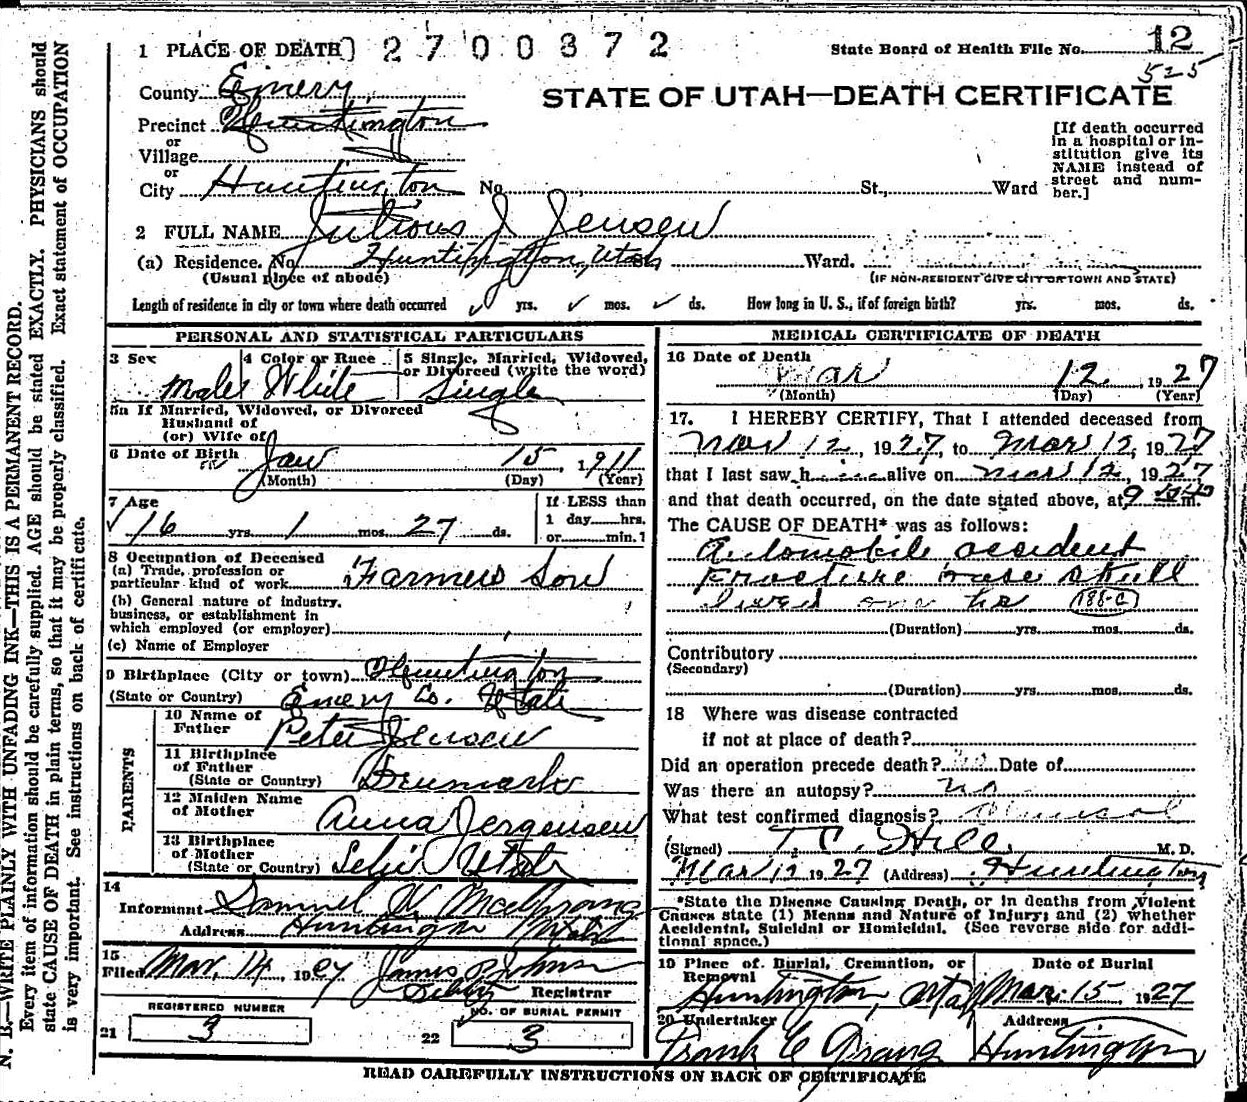 1 PLACE OF DEATH 2700372
State Board of Health File No. 12
525
County Emery
STATE OF UTAH—DEATH CERTIFICATE
Precinct Huntington
or
Village
or
City Huntington No. St., Ward
[If death occurred
in a hospital or in-
stitution give its
NAME instead of
street and num-
ber.]
2 FULL NAME Julious J Jensen
(a) Residence. No. Huntington, Utah St. Ward.
(Usual place of abode) (IF NON-RESIDENT GIVE CITY OR TOWN AND STATE)
Length of residence in city or town where death occurred yrs. mos. ds. How long in U. S., if of foreign birth? yrs. mos. ds.
PERSONAL AND STATISTICAL PARTICULARS
3 Sex 4 Color or Race 5 Single, Married, Widowed,
or Divorced (write the word)
Male White Single
5a If Married, Widowed, or Divorced
Husband of
(or) Wife of
6 Date of Birth Jan 15, 1911
(Month) (Day) (Year)
7 Age
16 yrs. 1 mos. 27 ds.
If LESS than
1 day hrs.
or min.?
8 Occupation of Deceased
(a) Trade, profession or
particular kind of work Farmers Son
(b) General nature of industry,
business, or establishment in
which employed (or employer)
(c) Name of Employer
9 Birthplace (City or town) Huntington
(State or Country) Emery Co. Utah
PARENTS
10 Name of
Father Peter Jensen
11 Birthplace
of Father
(State or Country) Denmark
12 Maiden Name
of Mother Anna Jergensen
13 Birthplace
of Mother
(State or Country) Lehi Utah
14
Informant Samuel W
Address Huntington Utah
15
Filed Mar. 14, 1927 James P Johnson
Registrar
REGISTERED NUMBER
21 3
NO. OF BURIAL PERMIT
22 3
MEDICAL CERTIFICATE OF DEATH
16 Date of Death
Mar 12, 1927
(Month) (Day) (Year)
17. I HEREBY CERTIFY, That I attended deceased from
Mar 12, 1927, to Mar 12, 1927
that I last saw h alive on Mar 12, 1927
and that death occurred, on the date stated above, at 9 m.
The CAUSE OF DEATH* was as follows:
Automobile accident
Fracture base skull
lived one hr 188-C
(Duration) yrs. mos. ds.
Contributory
(Secondary)
(Duration) yrs. mos. ds.
18 Where was disease contracted
if not at place of death?
Did an operation precede death? no Date of
Was there an autopsy? no
What test confirmed diagnosis?
(Signed) T. C. Hill M. D.
Mar 12 1927 (Address) Huntington
*State the Disease Causing Death, or in deaths from Violent
Causes state (1) Means and Nature of Injury; and (2) whether
Accidental, Suicidal or Homicidal. (See reverse side for addi-
tional space.)
19 Place of Burial, Cremation, or
Removal
Huntington, Utah
Date of Burial
Mar. 15 1927
20 Undertaker Address
Frank E Prang Huntington
READ CAREFULLY INSTRUCTIONS ON BACK OF CERTIFICATE
N. B.—WRITE PLAINLY WITH UNFADING INK—THIS IS A PERMANENT RECORD.
Every item of information should be carefully supplied. AGE should be stated EXACTLY. PHYSICIANS should
state CAUSE OF DEATH in plain terms, so that it may be properly classified. Exact statement of OCCUPATION
is very important. See instructions on back of certificate.